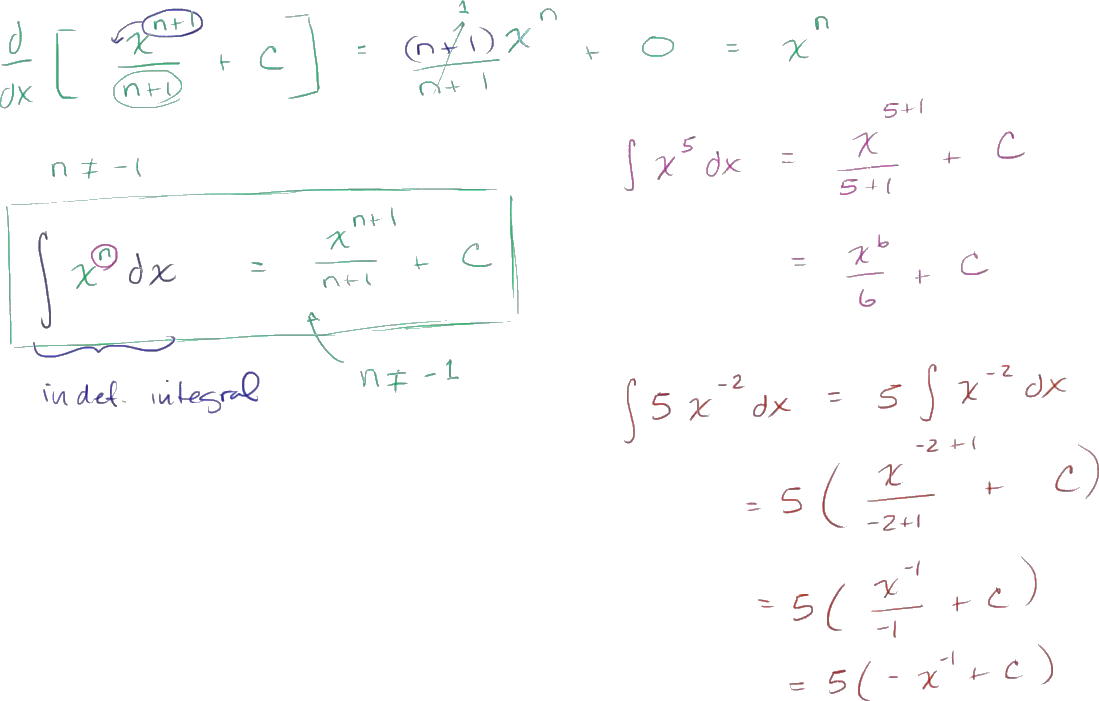 d/dx [ x^(n+1)/(n+1) + C ] = (n+1)x^n/(n+1) + 0 = x^n
1
n ≠ -1
∫ x^n dx = x^(n+1)/(n+1) + C
n ≠ -1
indef. integral
∫ x^5 dx = x^(5+1)/(5+1) + C
= x^6/6 + C
∫ 5 x^(-2) dx = 5 ∫ x^(-2) dx
= 5 ( x^(-2+1)/(-2+1) + C )
= 5 ( x^(-1)/(-1) + C )
= 5 ( - x^(-1) + C )